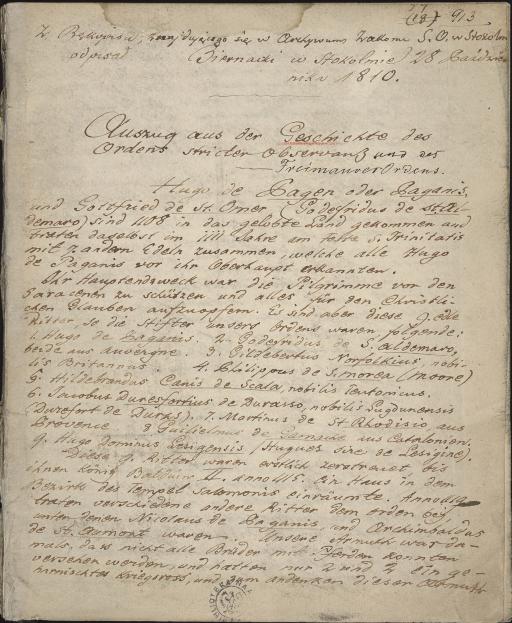 37
(18) 913
Z Rękopisu, znajdującego się w Archiwum Zakonu S. O. w Stokolm
odpisał Biernacki w Stokolmie 28 Paździer
nika 1810.
Auszug aus der Geschichte des
Ordens stricter Observanz und des
Freimaurer Ordens.
Hugo de Pagen oder Paganis,
und Gottfried de St. Omer (Godefridus de St. Al-
demaro) sind 1108 in das gelobte Land gekommen und
traten daselbst im 1111 Jahre am Feste S. Trinitatis
mit 7 andern Edeln zusammen, welche alle Hugo
de Paganis vor ihr Oberhaupt erkannten.
Ihr Hauptendzweck war, die Pilgrimme vor den
Saracenen zu schützen und alles für den Christli-
chen Glauben aufzuopfern. Es sind aber diese 9 edle
Ritter, so die Stifter unsers Ordens waren, folgende:
1. Hugo de Paganis. 2. Godefridus de S. Aldemaro,
beide aus Auvergne. 3. Gildebertus Norfolkius, nobi-
lis Britannus 4. Philippus de Simorea (Moore)
5. Hildebrandus Canis de Scala, nobilis Teutonicus.
6. Jacobus Duresfortius de Durasso, nobilis Lugdunensis
(Durefort de Duras). 7. Martinus de St. Rhodisio, aus
Provence 8 Guilhelmus de aus Catalonien.
9. Hugo Dominus Lesigensis (Hugues Sire de Lesigne).
Diese 9 Ritter waren erstlich zerstreuet, bis
ihnen König Balduin II. anno 1115. Ein Haus in dem
Bezirk des Tempels Salomonis einräumte. Anno
traten verschiedene andere Ritter dem Orden bey
unter denen Nicolaus de Paganis und Archimbaldus
de St. Aumont waren. Unsere Armuth war da-
mals, dass nicht alle Brüder mit Pferden konnten
versehen werden, und hatten nur 2 und 2 ein ge-
harnischtes Kriegsross, und zum andenken dieser Armuth